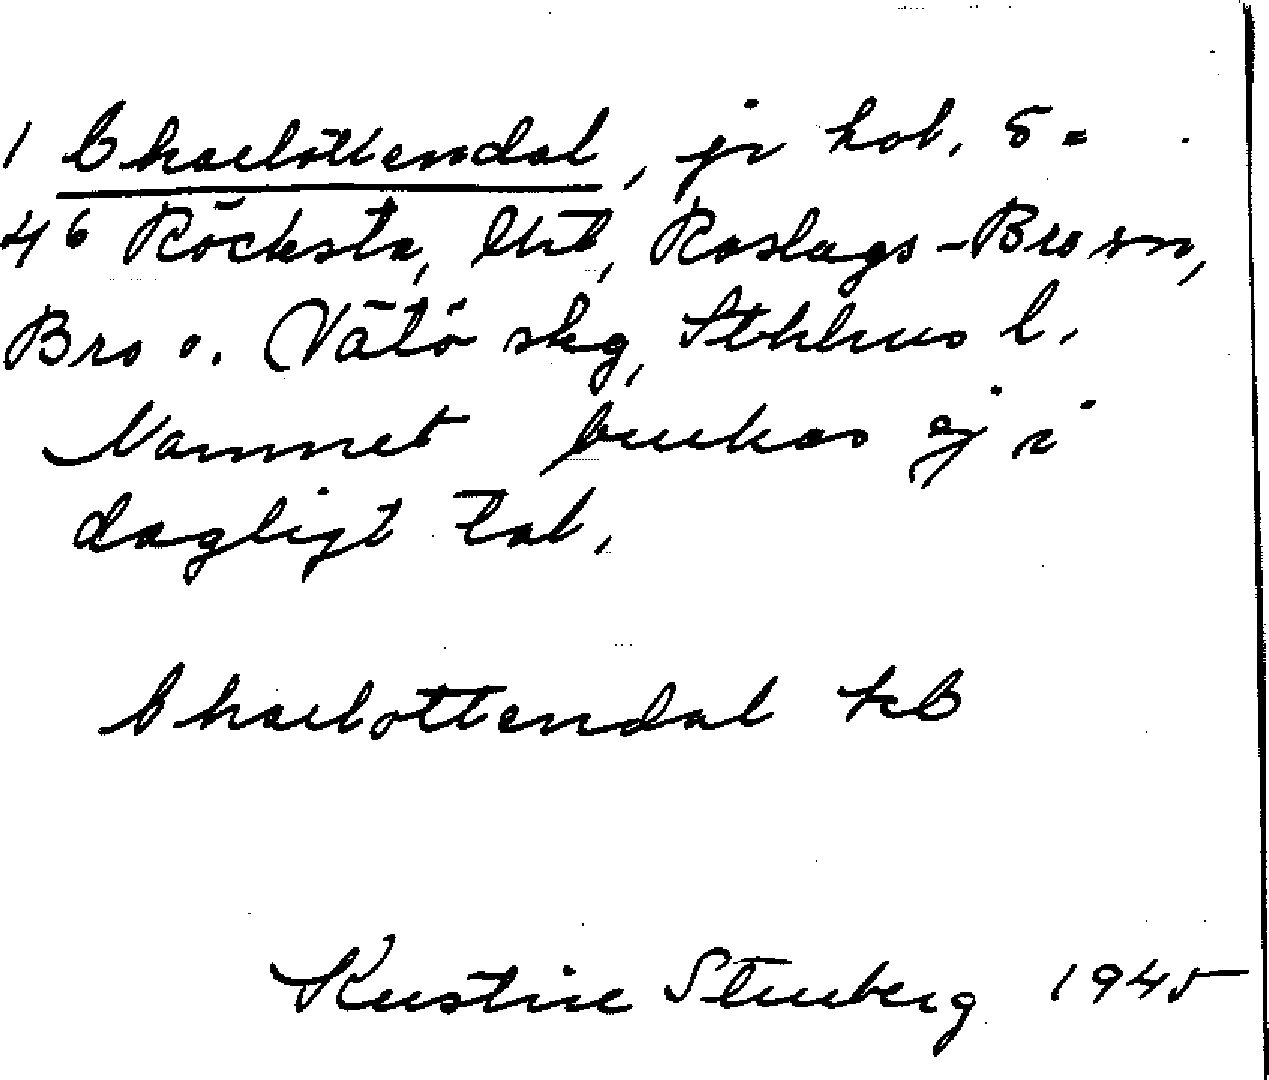 1 Charlottendal, jr hol. 5=
4⁶ Röcksta, lht, Roslags-Bro sn,
Bro o. Vätö skg, Sthlms l.
Namnet brukas ej i
dagligt tal,
Charlottendal kb
Kerstin Stenberg 1945